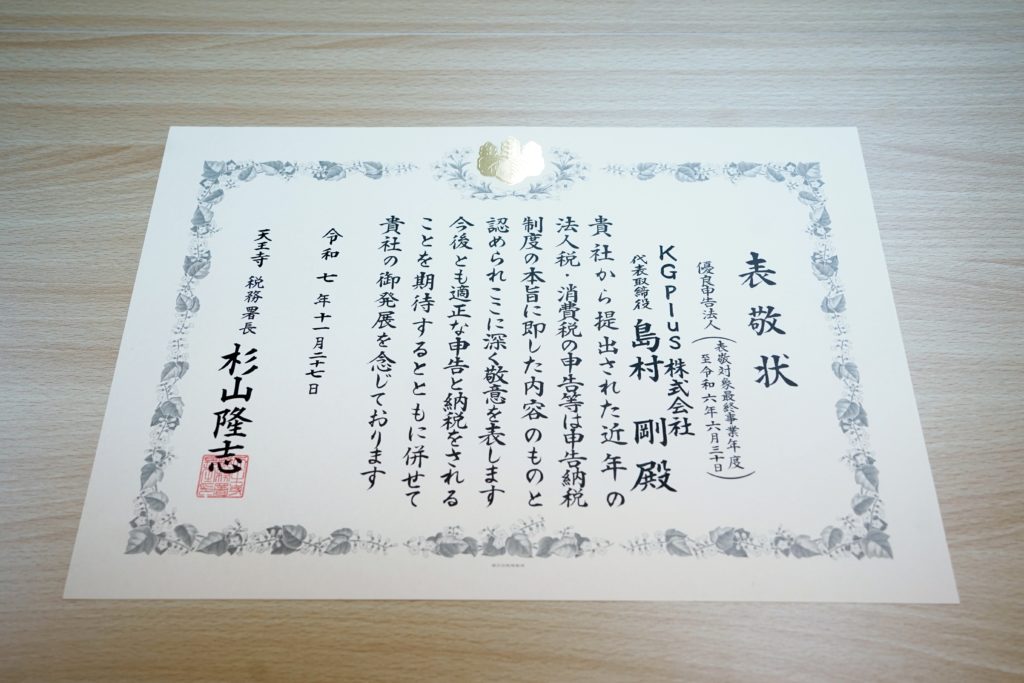 表敬状
優良申告法人(表敬対象最終事業年度
至令和六年六月三十日)
KGPlus株式会社
代表取締役 島村 剛 殿
貴社から提出された近年の
法人税・消費税の申告等は申告納税
制度の本旨に即した内容のものと
認められここに深く敬意を表します
今後とも適正な申告と納税をされる
ことを期待するとともに併せて
貴社の御発展を念じております
令和七年十一月二十七日
天王寺税務署長 杉山隆志